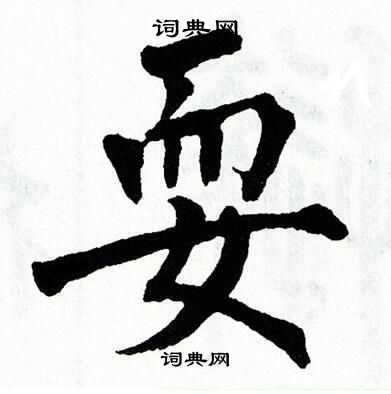 词典网
耍
词典网